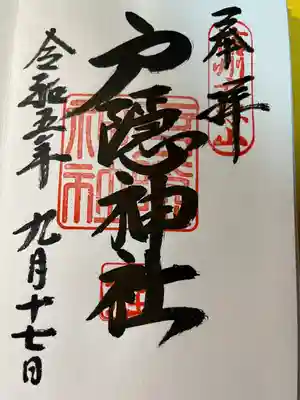 奉拝
戸隠神社
令和五年 九月十七日